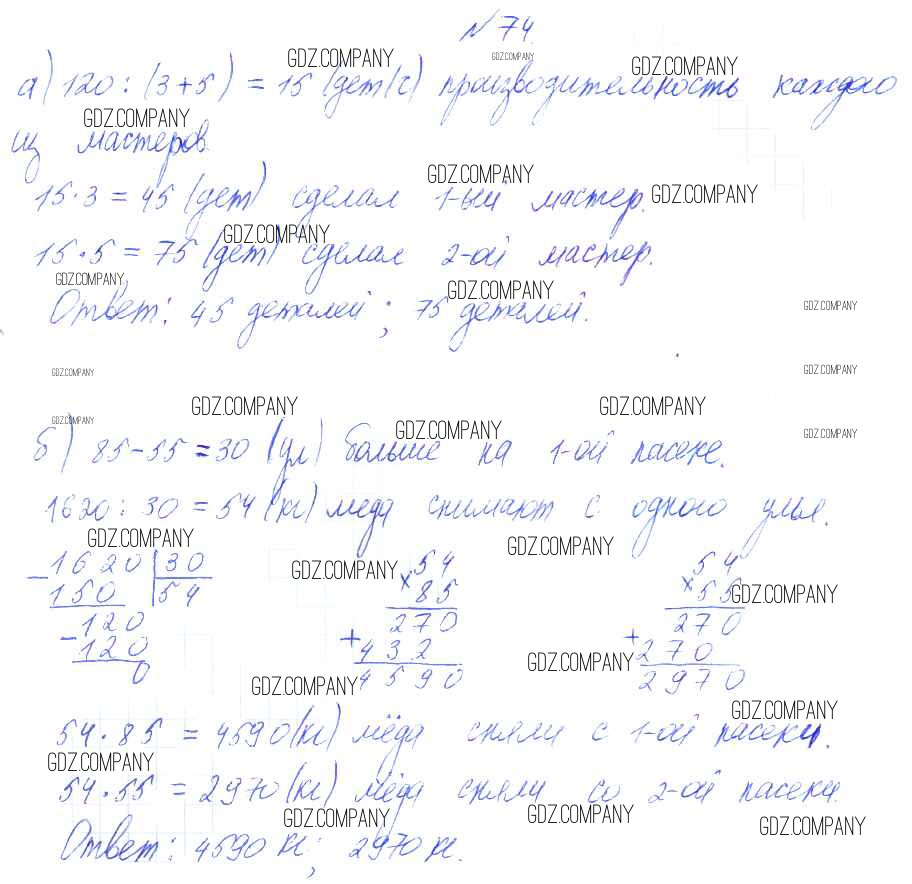 № 74.
GDZ.COMPANY GDZ.COMPANY GDZ.COMPANY
а) 120 : (3+5) = 15 (дет/ч) производительность каждого
GDZ.COMPANY
из мастеров.
GDZ.COMPANY GDZ.COMPANY
15·3 = 45 (дет) сделал 1-ый мастер.
GDZ.COMPANY
15·5 = 75 (дет) сделал 2-ой мастер.
GDZ.COMPANY GDZ.COMPANY GDZ.COMPANY
Ответ: 45 деталей; 75 деталей.
GDZ.COMPANY GDZ.COMPANY
GDZ.COMPANY GDZ.COMPANY
GDZ.COMPANY GDZ.COMPANY GDZ.COMPANY
б) 85-55 = 30 (ул) больше на 1-ой пасеке.
1620 : 30 = 54 (кг) меда снимают с одного улья.
GDZ.COMPANY GDZ.COMPANY
-1620 | 30 54 54
150 54 × 85 × 55
GDZ.COMPANY GDZ.COMPANY
-120 270 270
120 + 432 + 270
0 4590 2970
GDZ.COMPANY GDZ.COMPANY
GDZ.COMPANY
54·85 = 4590 (кг) мёда сняли с 1-ой пасеки.
GDZ.COMPANY
54·55 = 2970 (кг) мёда сняли со 2-ой пасеки.
GDZ.COMPANY GDZ.COMPANY GDZ.COMPANY
Ответ: 4590 кг; 2970 кг.